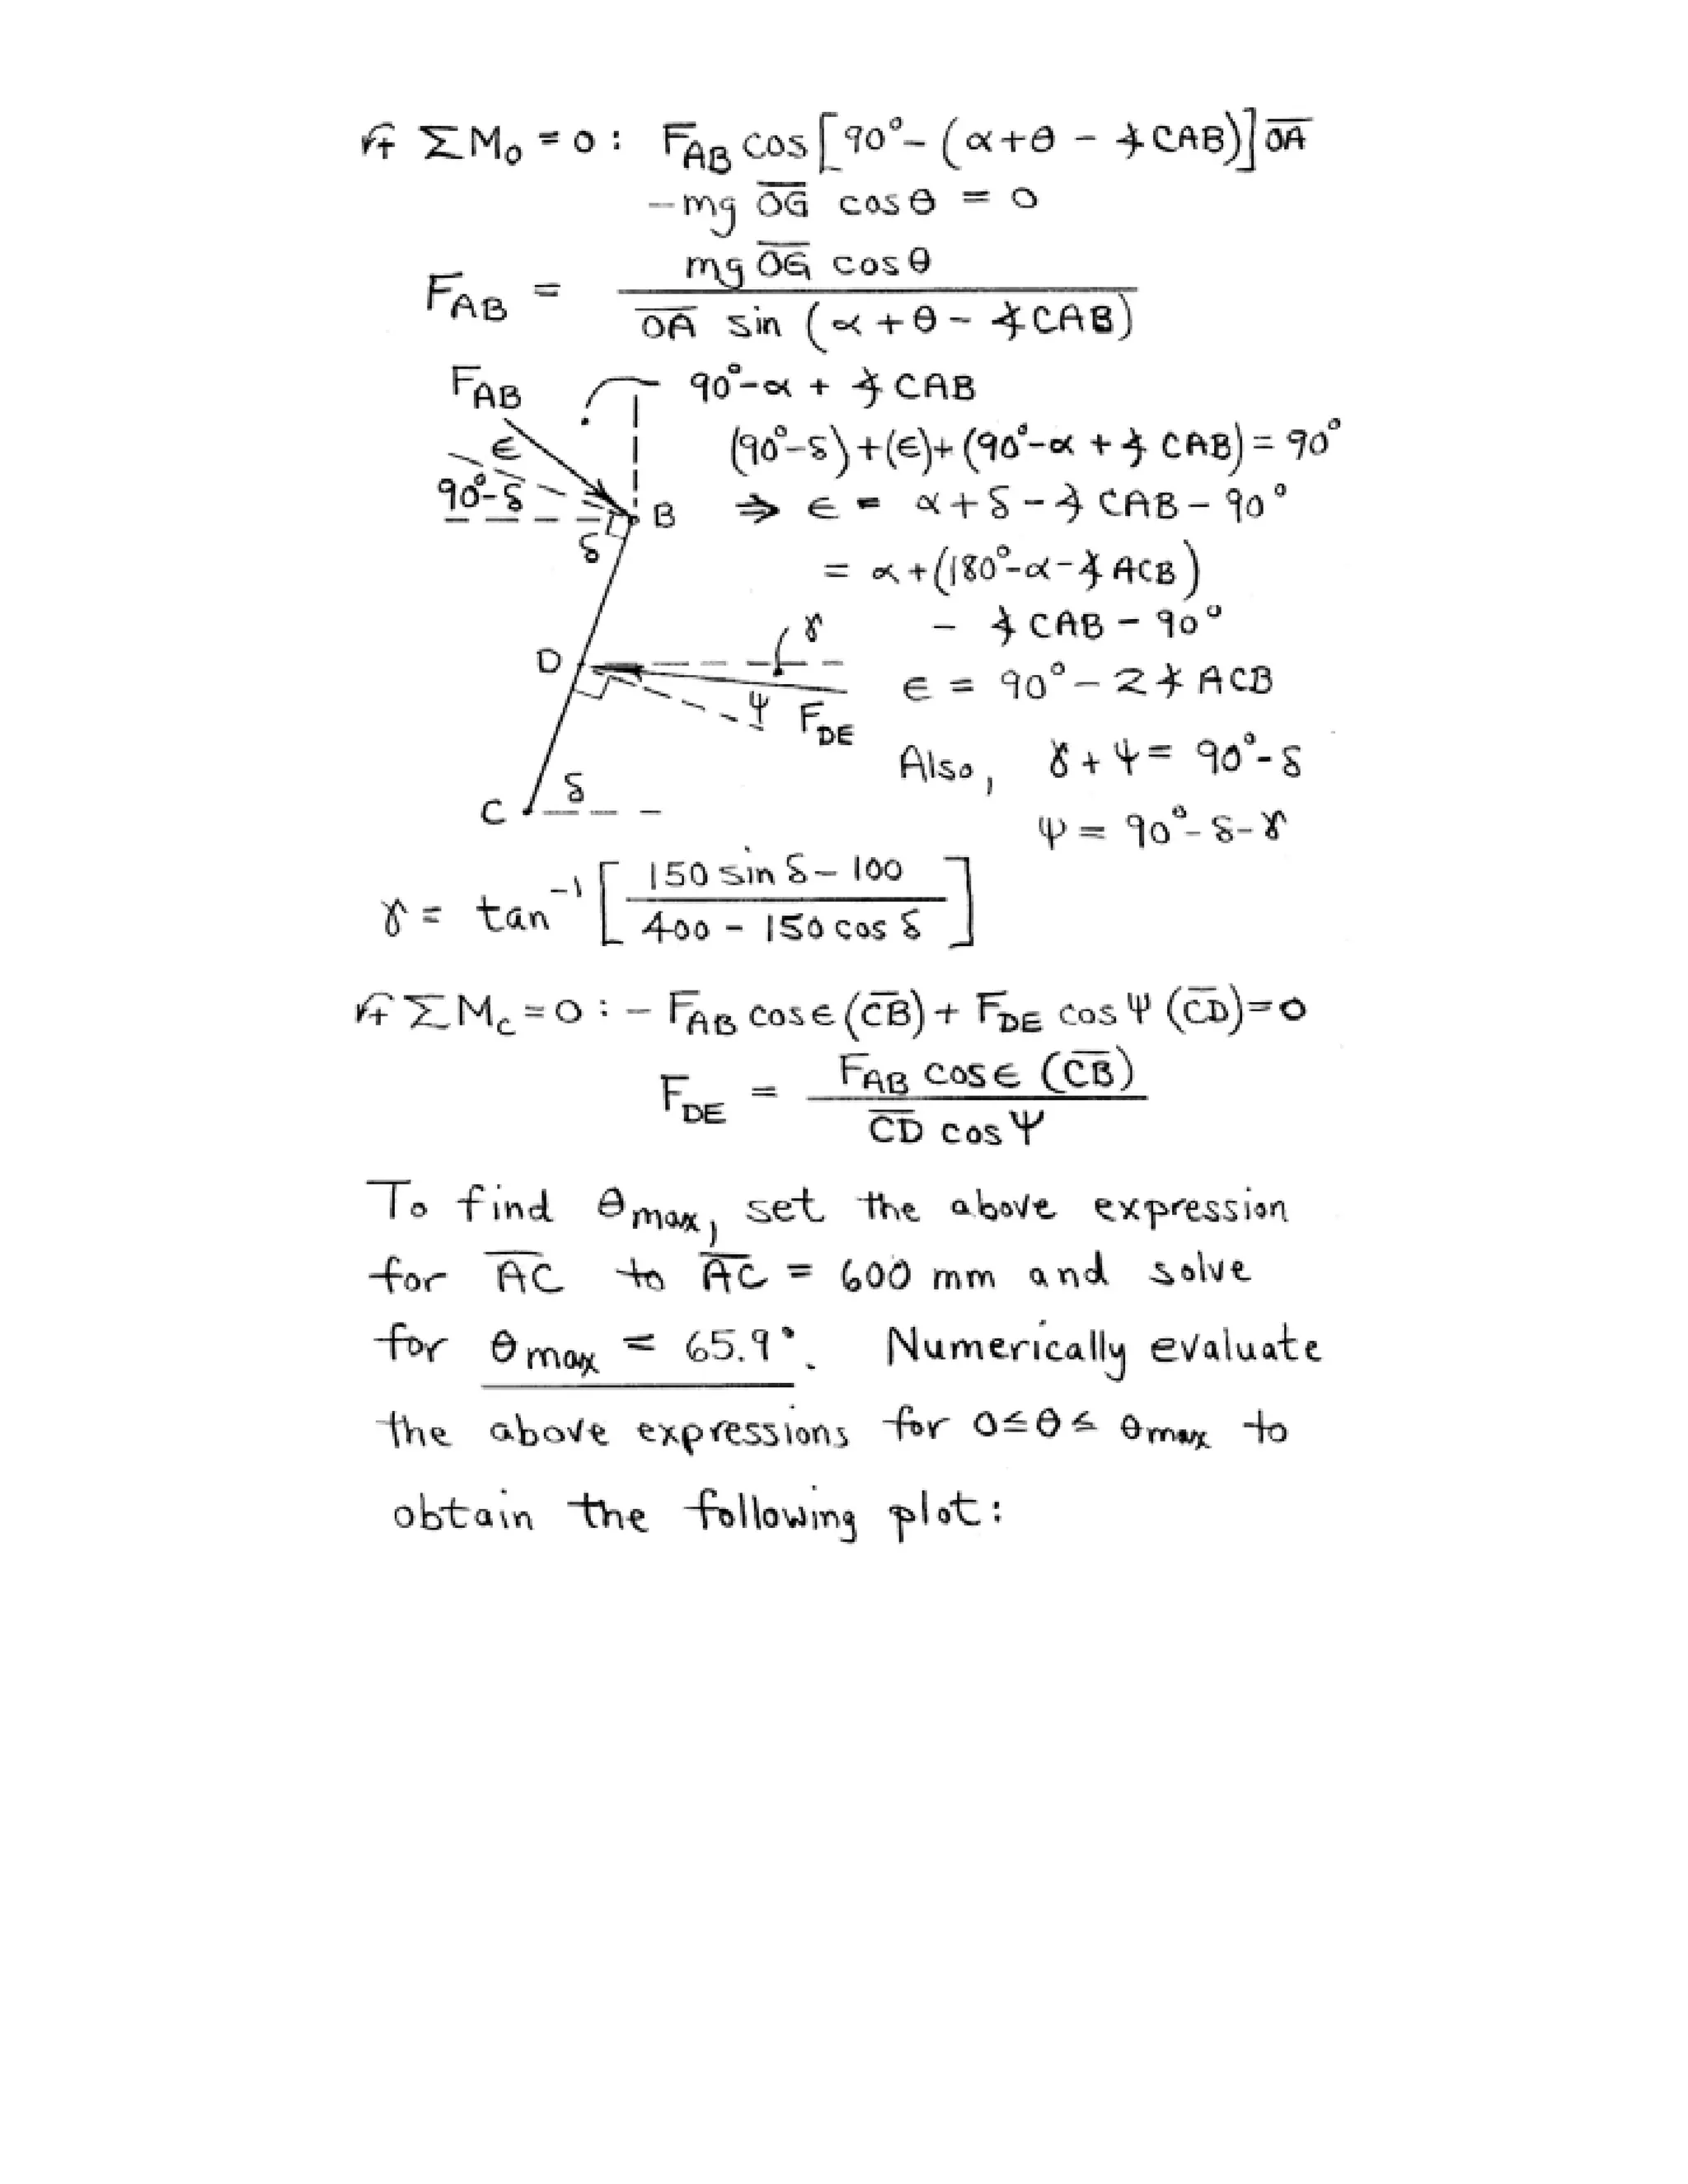 ↶+ ΣM₀ = 0 : F_AB cos [90° - (α+θ - ∡CAB)] O̅A̅
- mg O̅G̅ cosθ = 0
F_AB = mg O̅G̅ cosθ / O̅A̅ sin (α+θ - ∡CAB)
F_AB 90°-α + ∡CAB
ϵ (90°-δ)+(ϵ)+(90°-α + ∡CAB) = 90°
90°-δ B ⇒ ϵ = α+δ - ∡CAB - 90°
δ = α+(180°-α-∡ACB)
γ - ∡CAB - 90°
D ϵ = 90° - 2∡ACB
ψ F_DE
Also, γ + ψ = 90°-δ
C δ ψ = 90°-δ-γ
γ = tan⁻¹ [ 150 sin δ - 100 / 400 - 150 cos δ ]
↶+ ΣM_C = 0 : - F_AB cosϵ (C̅B̅) + F_DE cosψ (C̅D̅) = 0
F_DE = F_AB cosϵ (C̅B̅) / C̅D̅ cosψ
To find θmax, set the above expression
for A̅C̅ to A̅C̅ = 600 mm and solve
for θmax = 65.9°. Numerically evaluate
the above expressions for 0≤θ≤θmax to
obtain the following plot: